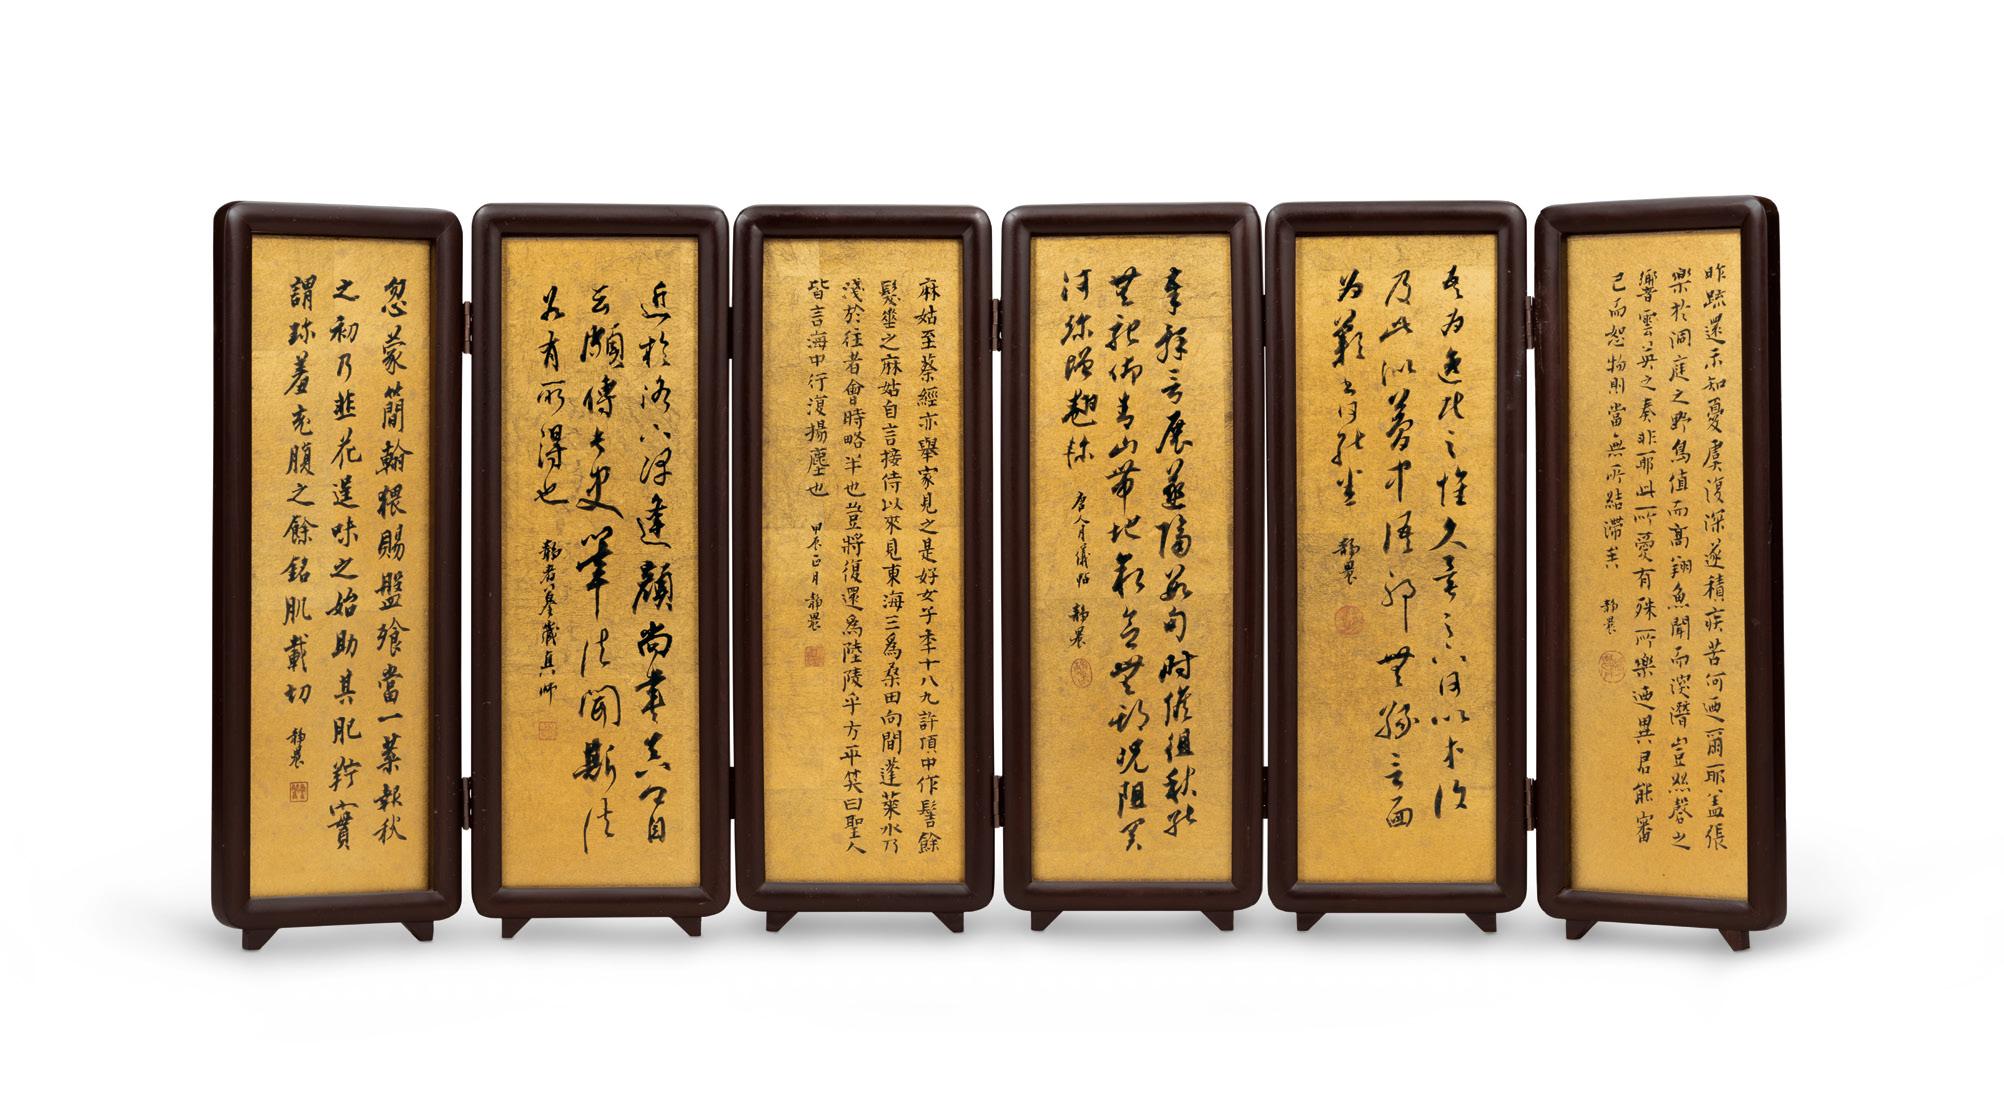 昨疏還示知憂虞復深遂積疾苦何迺爾耶蓋張
樂於洞庭之野鳥值而高翔魚聞而深潛豈絲磬之
響雲英之奏非耶此所愛有殊所樂迺異君能審
己而恕物則當無所結滯 静農
吾為逸民之懷久矣足下何以方復
及此似夢中語耶無緣言面
為歎書何能悉 静農
奉辭言展遽隔數旬時候徂秋
青山帶地況阻關
河彌增翹軫 唐人月儀帖 静農
麻姑至蔡經亦舉家見之是好女子年十八九許頂中作髻餘
髮垂之麻姑自言接侍以來見東海三為桑田向間蓬萊水乃
淺於往者會時略半也豈將復還為陸陵乎方平笑曰聖人
皆言海中行復揚塵也 甲辰正月 静農
近於洛下偶逢顏尚書真卿自
云頗傳長史筆法聞斯法
若有所得也 静者摹藏真師
忽蒙簡翰猥賜盤飧當一葉報秋
之初乃韭花逞味之始助其肥羜實
謂珍羞充腹之餘銘肌載切 静農